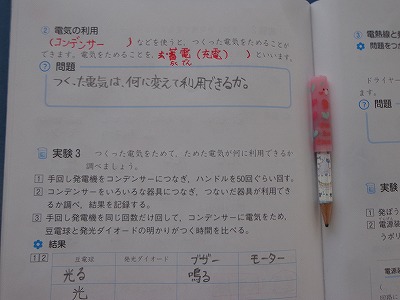 ② 電気の利用
(コンデンサー) などを使うと、つくった電気をためることが
できます。電気をためることを、蓄電(充電)といいます。
ちくでん
? 問題
つくった電気は、何に変えて利用できるか。
実験3 つくった電気をためて、ためた電気が何に利用できるか
調べましょう。
1 手回し発電機をコンデンサーにつなぎ、ハンドルを50回ぐらい回す。
2 コンデンサーをいろいろな器具につなぎ、つないだ器具が利用でき
るか調べ、結果を記録する。
3 手回し発電機を同じ回数だけ回して、コンデンサーに電気をため、
豆電球と発光ダイオードの明かりがつく時間を比べる。
結果
1 2 豆電球 発光ダイオード ブザー モーター
光る 鳴る
光
③ 電熱線と
問題をつか
ドライヤー
?
1 発ぽう
2 電源装
うポリ